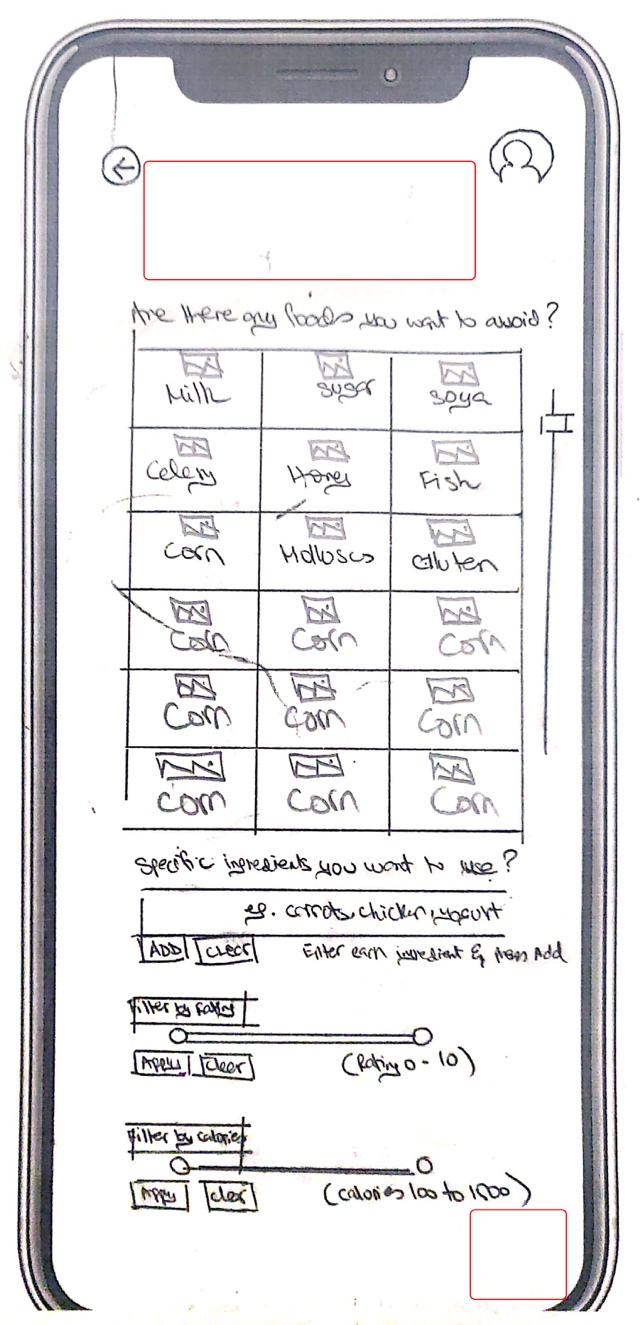 Are there any foods you want to avoid?
Milk sugar soya
Celery Honey Fish
Corn Molluscs Gluten
Corn Corn Corn
Corn Corn Corn
Corn Corn Corn
Specific ingredients you want to use?
eg. carrots, chicken, yogurt
ADD Clear Enter each ingredient & press Add
Filter by Rating
Apply Clear (Rating 0 - 10)
Filter by calories
Apply Clear (calories 100 to 1500)